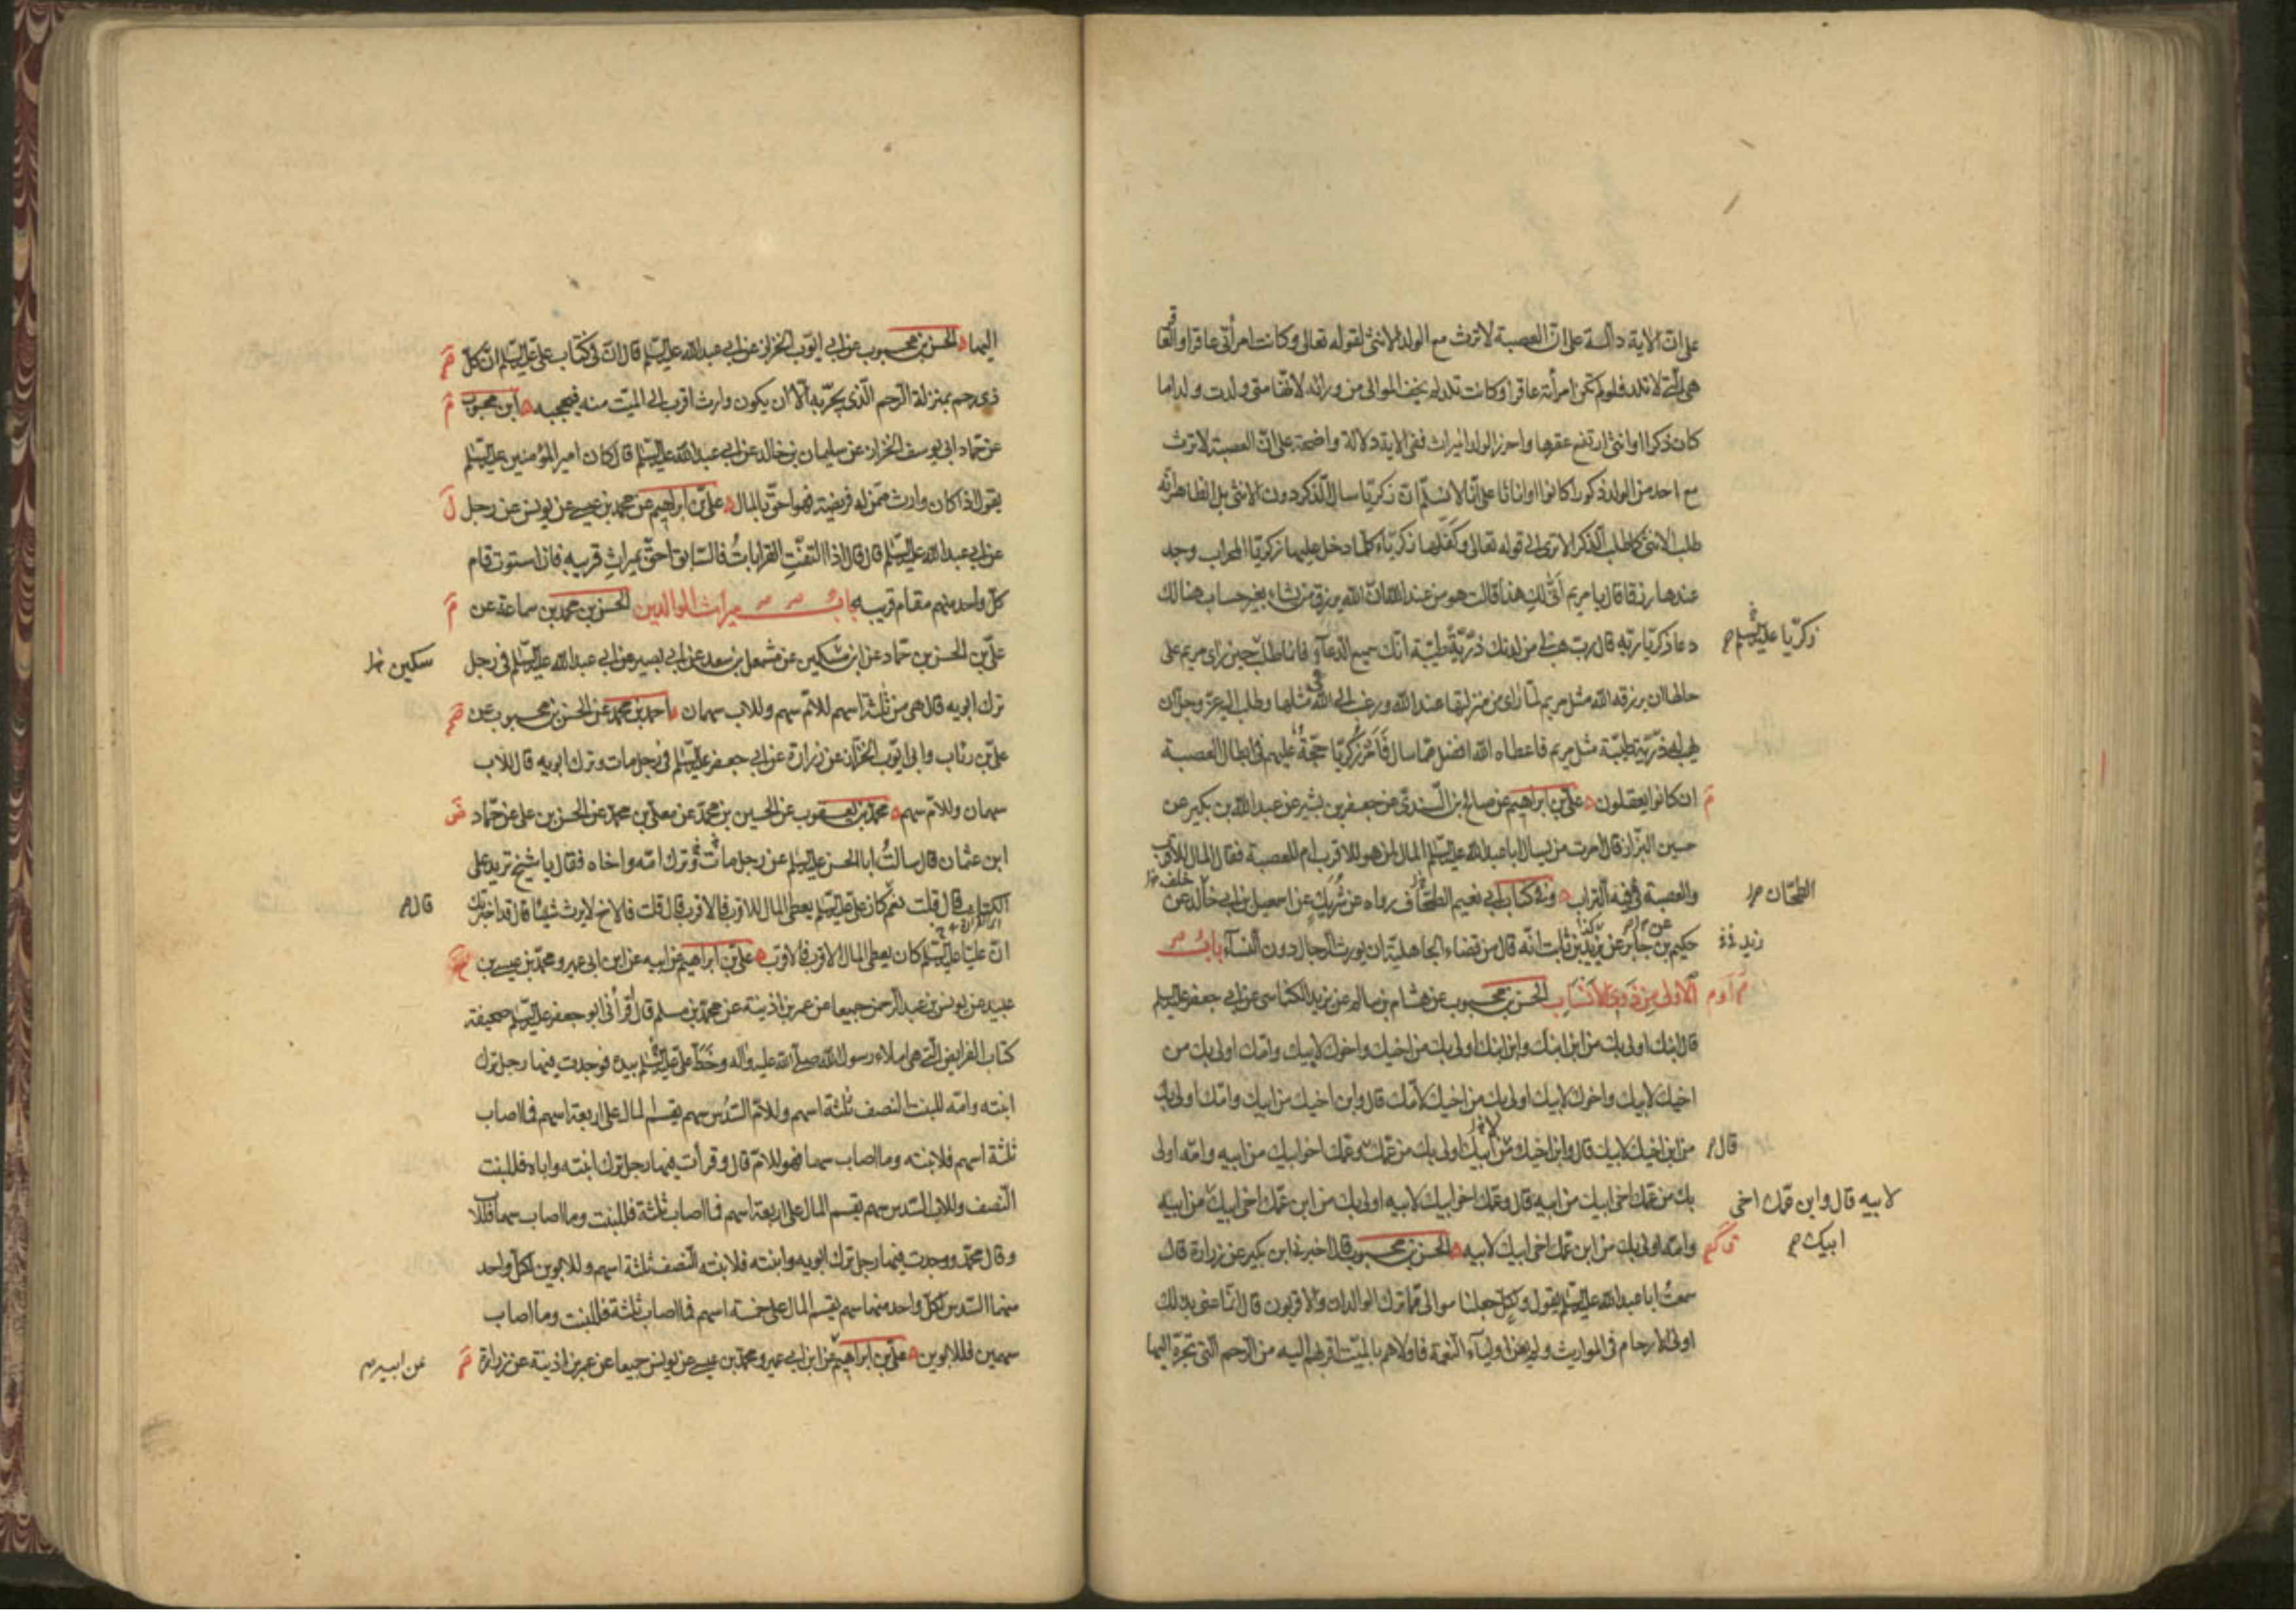 على ان الاية دالة على ان العصبة لا ترث مع الولد الانثى لقوله تعالى وكانت امرأتي عاقرا والعاقر
هي التي لا تلد فلو لم تكن امرأته عاقرا وكانت تلد لم يخف الموالي من ورائه لانها متى ولدت ولدا ما
كان ذكرا او انثى ارتفع عقرها واحرز الولد الميراث ففي الاية دلالة واضحة على ان العصبة لا ترث
مع احد من الولد ذكورا كانوا او اناثا على انا لا نسلم ان زكريا سال الذكر دون الانثى بل الظاهر انه
طلب الانثى كما طلب الذكر الا ترى الى قوله تعالى وكفلها زكرياء كلما دخل عليها زكريا المحراب وجد
عندها رزقا قال يا مريم انى لك هذا قالت هو من عند الله ان الله يرزق من يشاء بغير حساب هنالك
دعا زكريا ربه قال رب هب لي من لدنك ذرية طيبة انك سميع الدعاء فانما طلب حين راى مريم على
زكريا عليه السلم
حالها ان يرزقه الله مثل مريم لما راى من منزلتها عند الله ورغب الى الله في مثلها وطلب اليه عز وجل ان
يهب له ذرية طيبة مثل مريم فاعطاه الله افضل مما سال فامر زكريا حجة عليهم في ابطال العصبة
ان كانوا يعقلون علي بن ابراهيم عن صالح بن السندي عن جعفر بن بشير عن عبد الله بن بكير عن
حسين البزاز قال امرت من يسال ابا عبد الله عليه السلم المال لمن هو للاقرب ام للعصبة فقال المال للاقرب
والعصبة في فيه التراب وفي كتاب ابي نعيم الطحان رواه عن شريك عن اسمعيل بن ابي خالد عن
الطحان
حكيم بن جابر عن زيد بن ثابت انه قال من قضاء الجاهلية ان يورث الرجال دون النساء باب
زيد
الاولى من ذوي الانساب الحسن بن محبوب عن هشام بن سالم عن يزيد الكناسي عن ابي جعفر عليه السلم
قال ابنك اولى بك من ابن ابنك وابن ابنك اولى بك من اخيك واخوك لابيك وامك اولى بك من
اخيك لابيك واخوك لابيك اولى بك من اخيك لامك قال وابن اخيك من ابيك وامك اولى بك
من ابن اخيك لابيك قال وابن اخيك من ابيك اولى بك من عمك وعمك اخو ابيك من ابيه وامه اولى
قال
بك من عمك اخي ابيك من ابيه قال وعمك اخو ابيك لابيه اولى بك من ابن عمك اخي ابيك من ابيه
لابيه قال وابن عمك اخي
وامه اولى بك من ابن عمك اخي ابيك لابيه الحسن بن محبوب قال اخبرني ابن بكير عن زرارة قال
ابيك
سمعت ابا عبد الله عليه السلم يقول ولكل جعلنا موالي مما ترك الوالدان والاقربون قال انما عنى بذلك
اولى الارحام في المواريث ولم يعن اولياء النعمة فاولاهم بالميت اقربهم اليه من الرحم التي تجره اليها
اليها الحسن بن محبوب عن ابي ايوب الخزاز عن ابي عبد الله عليه السلم قال ان في كتاب علي عليه السلم ان كل
ذي رحم بمنزلة الرحم الذي يجر به الا ان يكون وارث اقرب الى الميت منه فيحجبه ابن محبوب
عن حماد ابي يوسف الخزاز عن سليمان بن خالد عن ابي عبد الله عليه السلم قال كان امير المؤمنين عليه السلم
يقول اذا كان وارث ممن له فريضة فهو احق بالمال علي بن ابراهيم عن محمد بن عيسى عن يونس عن رجل
عن ابي عبد الله عليه السلم قال قال اذا التفت القرابات فالسابق احق بميراث قريبه فان استوت قام
كل واحد منهم مقام قريبه باب ميراث الوالدين الحسن بن محمد بن سماعة عن
علي بن الحسن بن حماد عن ابن مسكين عن مشمعل بن سعد عن ابي بصير عن ابي عبد الله عليه السلم في رجل
سكين
ترك ابويه قال هي من ثلثة اسهم للام سهم وللاب سهمان احمد بن محمد عن الحسن بن محبوب عن
علي بن رئاب وابي ايوب الخزاز عن زرارة عن ابي جعفر عليه السلم في رجل مات وترك ابويه قال للاب
سهمان وللام سهم محمد بن يعقوب عن الحسين بن محمد عن معلى بن محمد عن الحسن بن علي عن حماد
ابن عثمان قال سالت ابا الحسن عليه السلم عن رجل مات وترك امه واخاه فقال يا شيخ تريد على
الكتاب قال قلت نعم كان علي عليه السلم يعطي المال للاقرب فالاقرب قال قلت فالاخ لا يرث شيئا قال قد اخبرتك
قال
ان عليا عليه السلم كان يعطي المال الاقرب فالاقرب علي بن ابراهيم عن ابيه عن ابن ابي عمير ومحمد بن عيسى بن
عبيد عن يونس بن عبد الرحمن جميعا عن عمر بن اذينة عن محمد بن مسلم قال اقرأني ابو جعفر عليه السلم صحيفة
كتاب الفرايض التي هي املاء رسول الله صلى الله عليه واله وخط علي عليه السلم بيده فوجدت فيها رجل ترك
ابنته وامه للبنت النصف ثلثة اسهم وللام السدس سهم يقسم المال على اربعة اسهم فما اصاب
ثلثة اسهم فلابنته وما اصاب سهما فهو للام قال وقرأت فيها رجل ترك ابنته واباه فللبنت
النصف وللاب السدس سهم يقسم المال على اربعة اسهم فما اصاب ثلثة فللبنت وما اصاب سهما فللاب
وقال محمد ووجدت فيها رجل ترك ابويه وابنته فلابنته النصف ثلثة اسهم وللابوين لكل واحد
منهما السدس لكل واحد منهما سهم يقسم المال على خمسة اسهم فما اصاب ثلثة فللبنت وما اصاب
سهمين فللابوين علي بن ابراهيم عن ابن ابي عمير ومحمد بن عيسى عن يونس جميعا عن عمر بن اذينة عن زرارة
عن ابيه